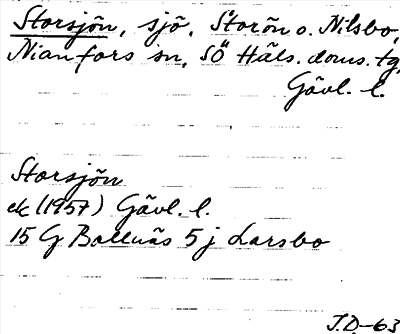 Storsjön, sjö, Storön o. Nilsbo,
Nianfors sn, SÖ Häls. doms. tg,
Gävl. l.
Storsjön
ek (1957) Gävl. l.
15 G Bollnäs 5 j Larsbo
J.D-63